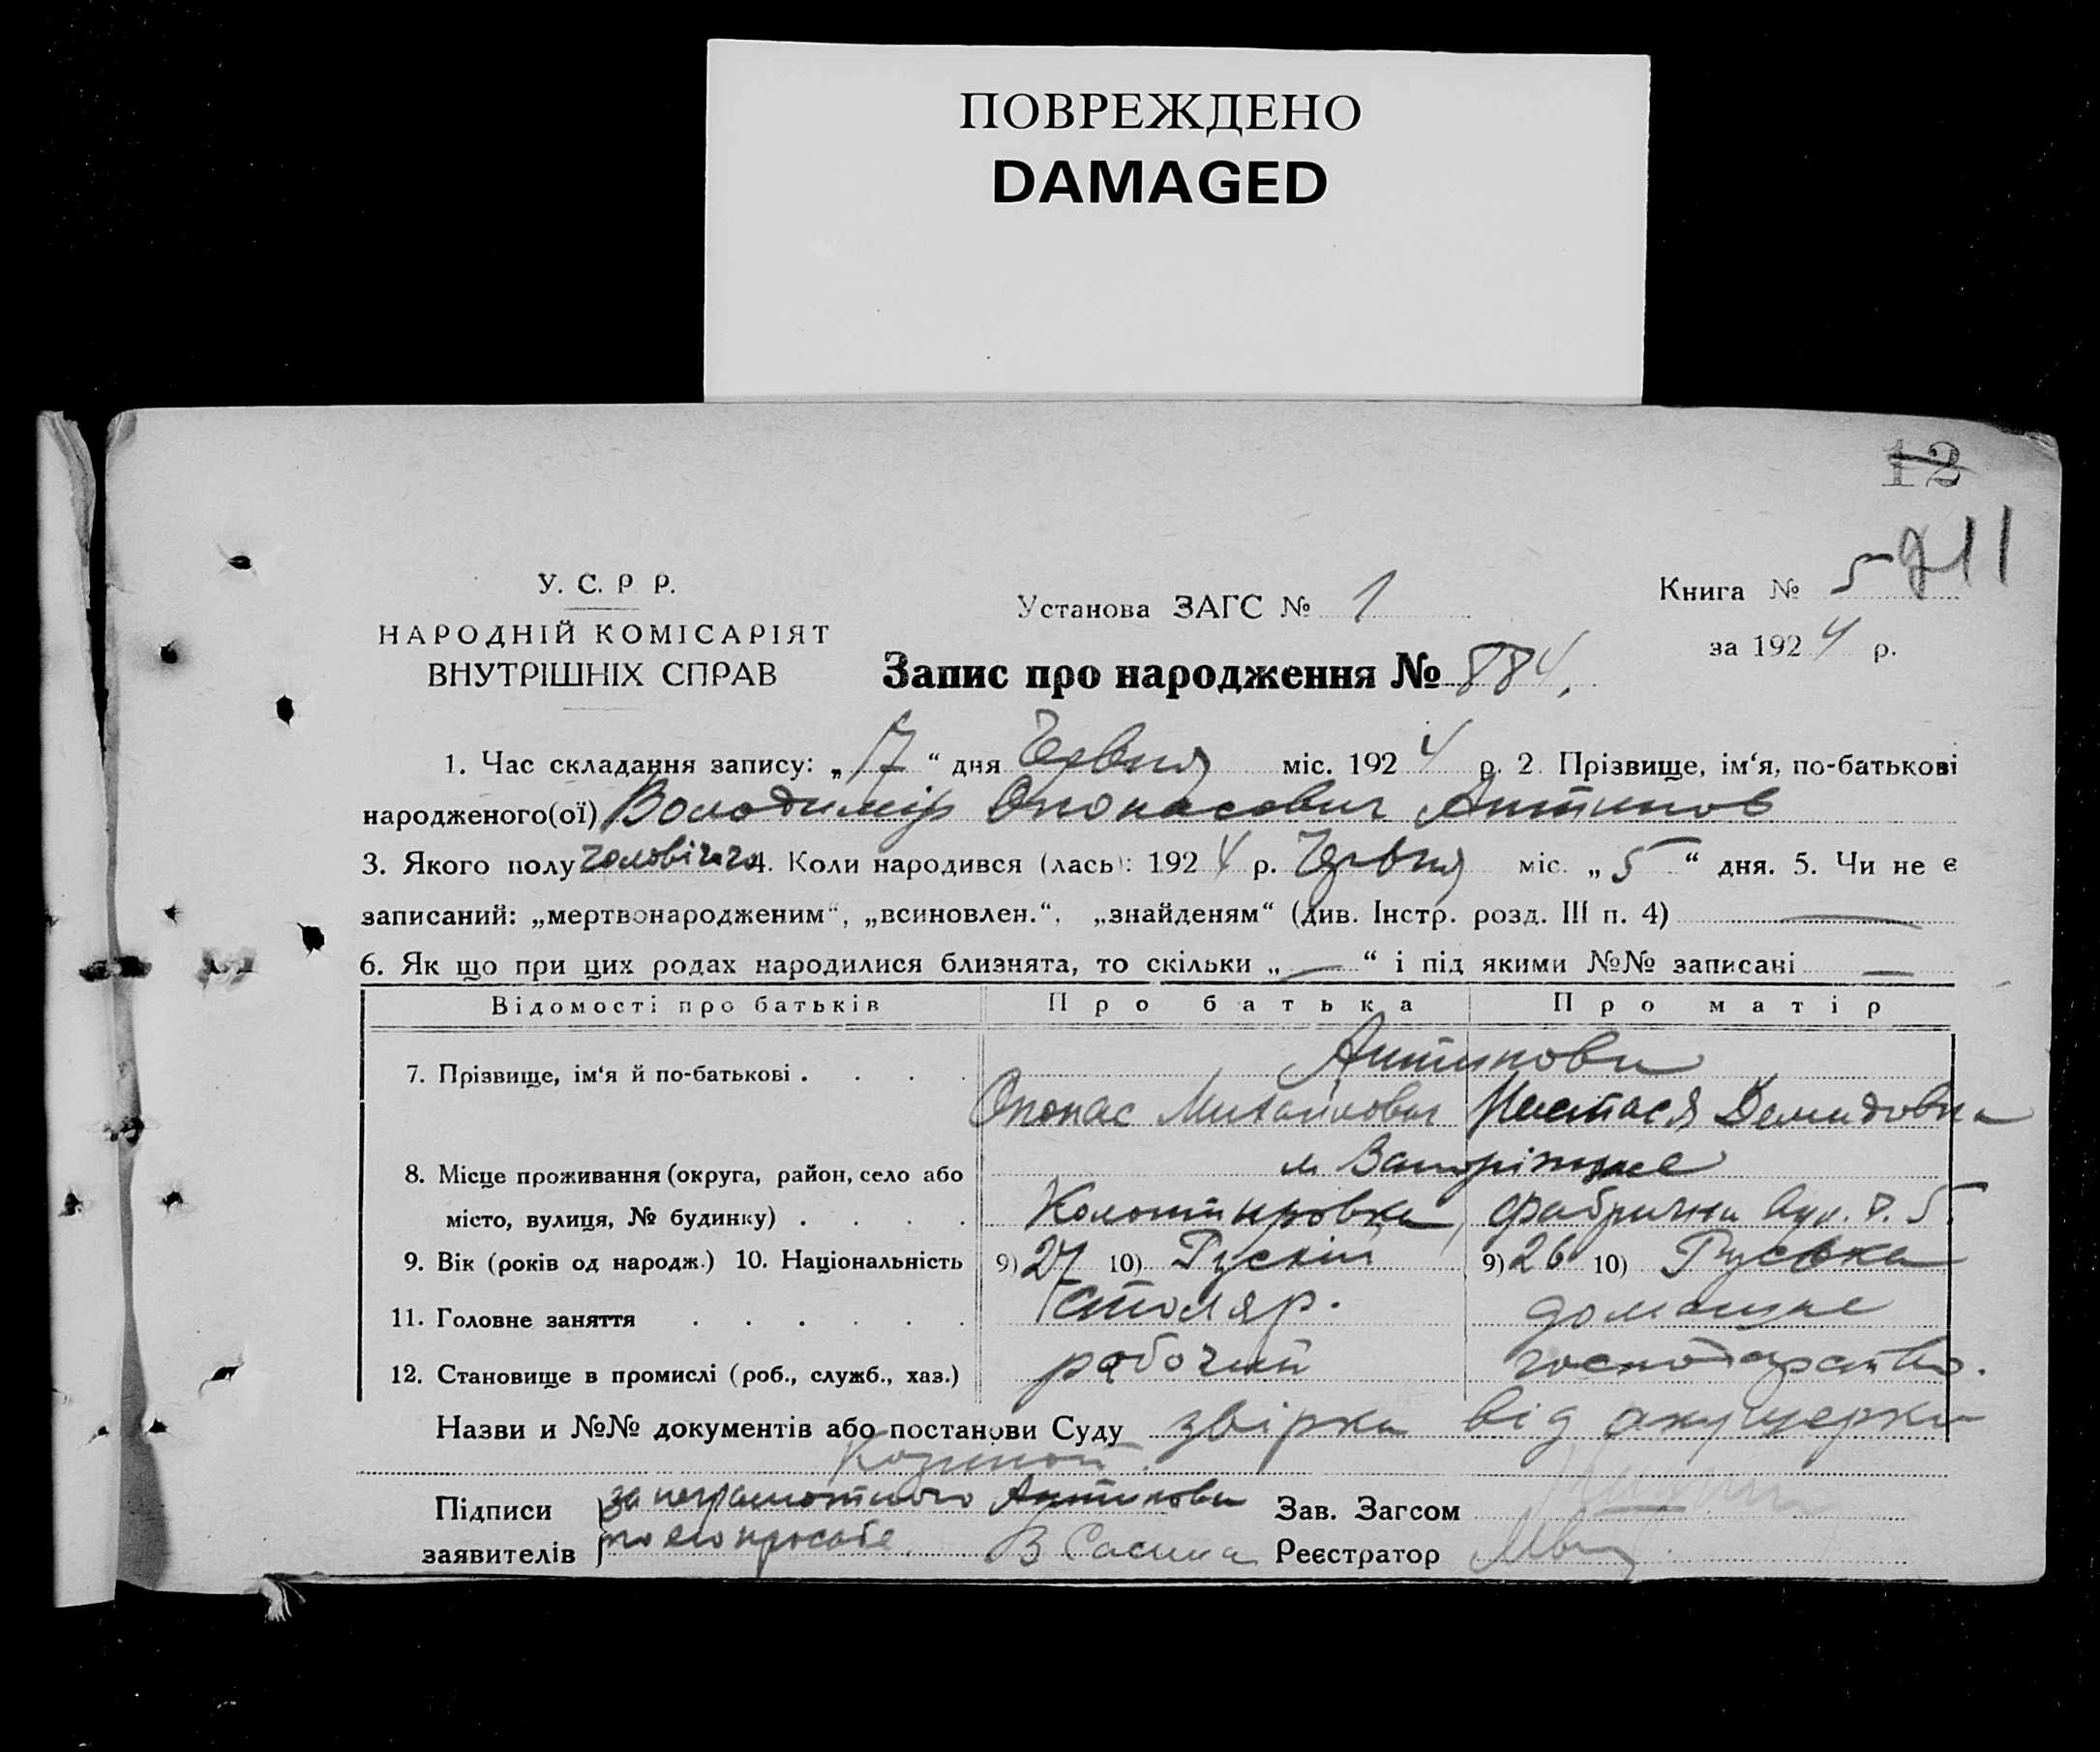 ПОВРЕЖДЕНО
DAMAGED
12
11
У. С. Р Р.
НАРОДНІЙ КОМІСАРІЯТ
ВНУТРІШНІХ СПРАВ
Установа ЗАГС № 1
Книга № 5
за 1924 р.
Запис про народження № 884.
1. Час складання запису: „17“ дня Червня міс. 1924 р. 2. Прізвище, ім‘я, по-батькові
народженого(ої) Володимір Опонасович Антипов
3. Якого полу чоловічого 4. Коли народився (лась): 1924 р. Червня міс. „5“ дня. 5. Чи не є
записаний: „мертвонародженим“, „всиновлен.“, „знайденям“ (див. Інстр. розд. III п. 4) —
6. Як що при цих родах народилися близнята, то скільки „—“ і під якими №№ записані —
Відомості про батьків Про батька Про матір
7. Прізвище, ім‘я й по-батькові . . . . Антипови
Опонас Михайлович Настася Демидовна
8. Місце проживання (округа, район, село або м Запоріжжє
місто, вулиця, № будинку) . . . . фабрична вул. д. 5
9. Вік (років од народж.) 10. Національність 9) 27 10) Руский 9) 26 10) Руська
11. Головне заняття . . . . . . Столяр. домашнє
12. Становище в промислі (роб., служб., хаз.) робочий господарство.
Назви и №№ документів або постанови Суду звірка від акушерки
Підписи за неграмотного Антипова Зав. Загсом
заявителів по его просьбе В Реєстратор